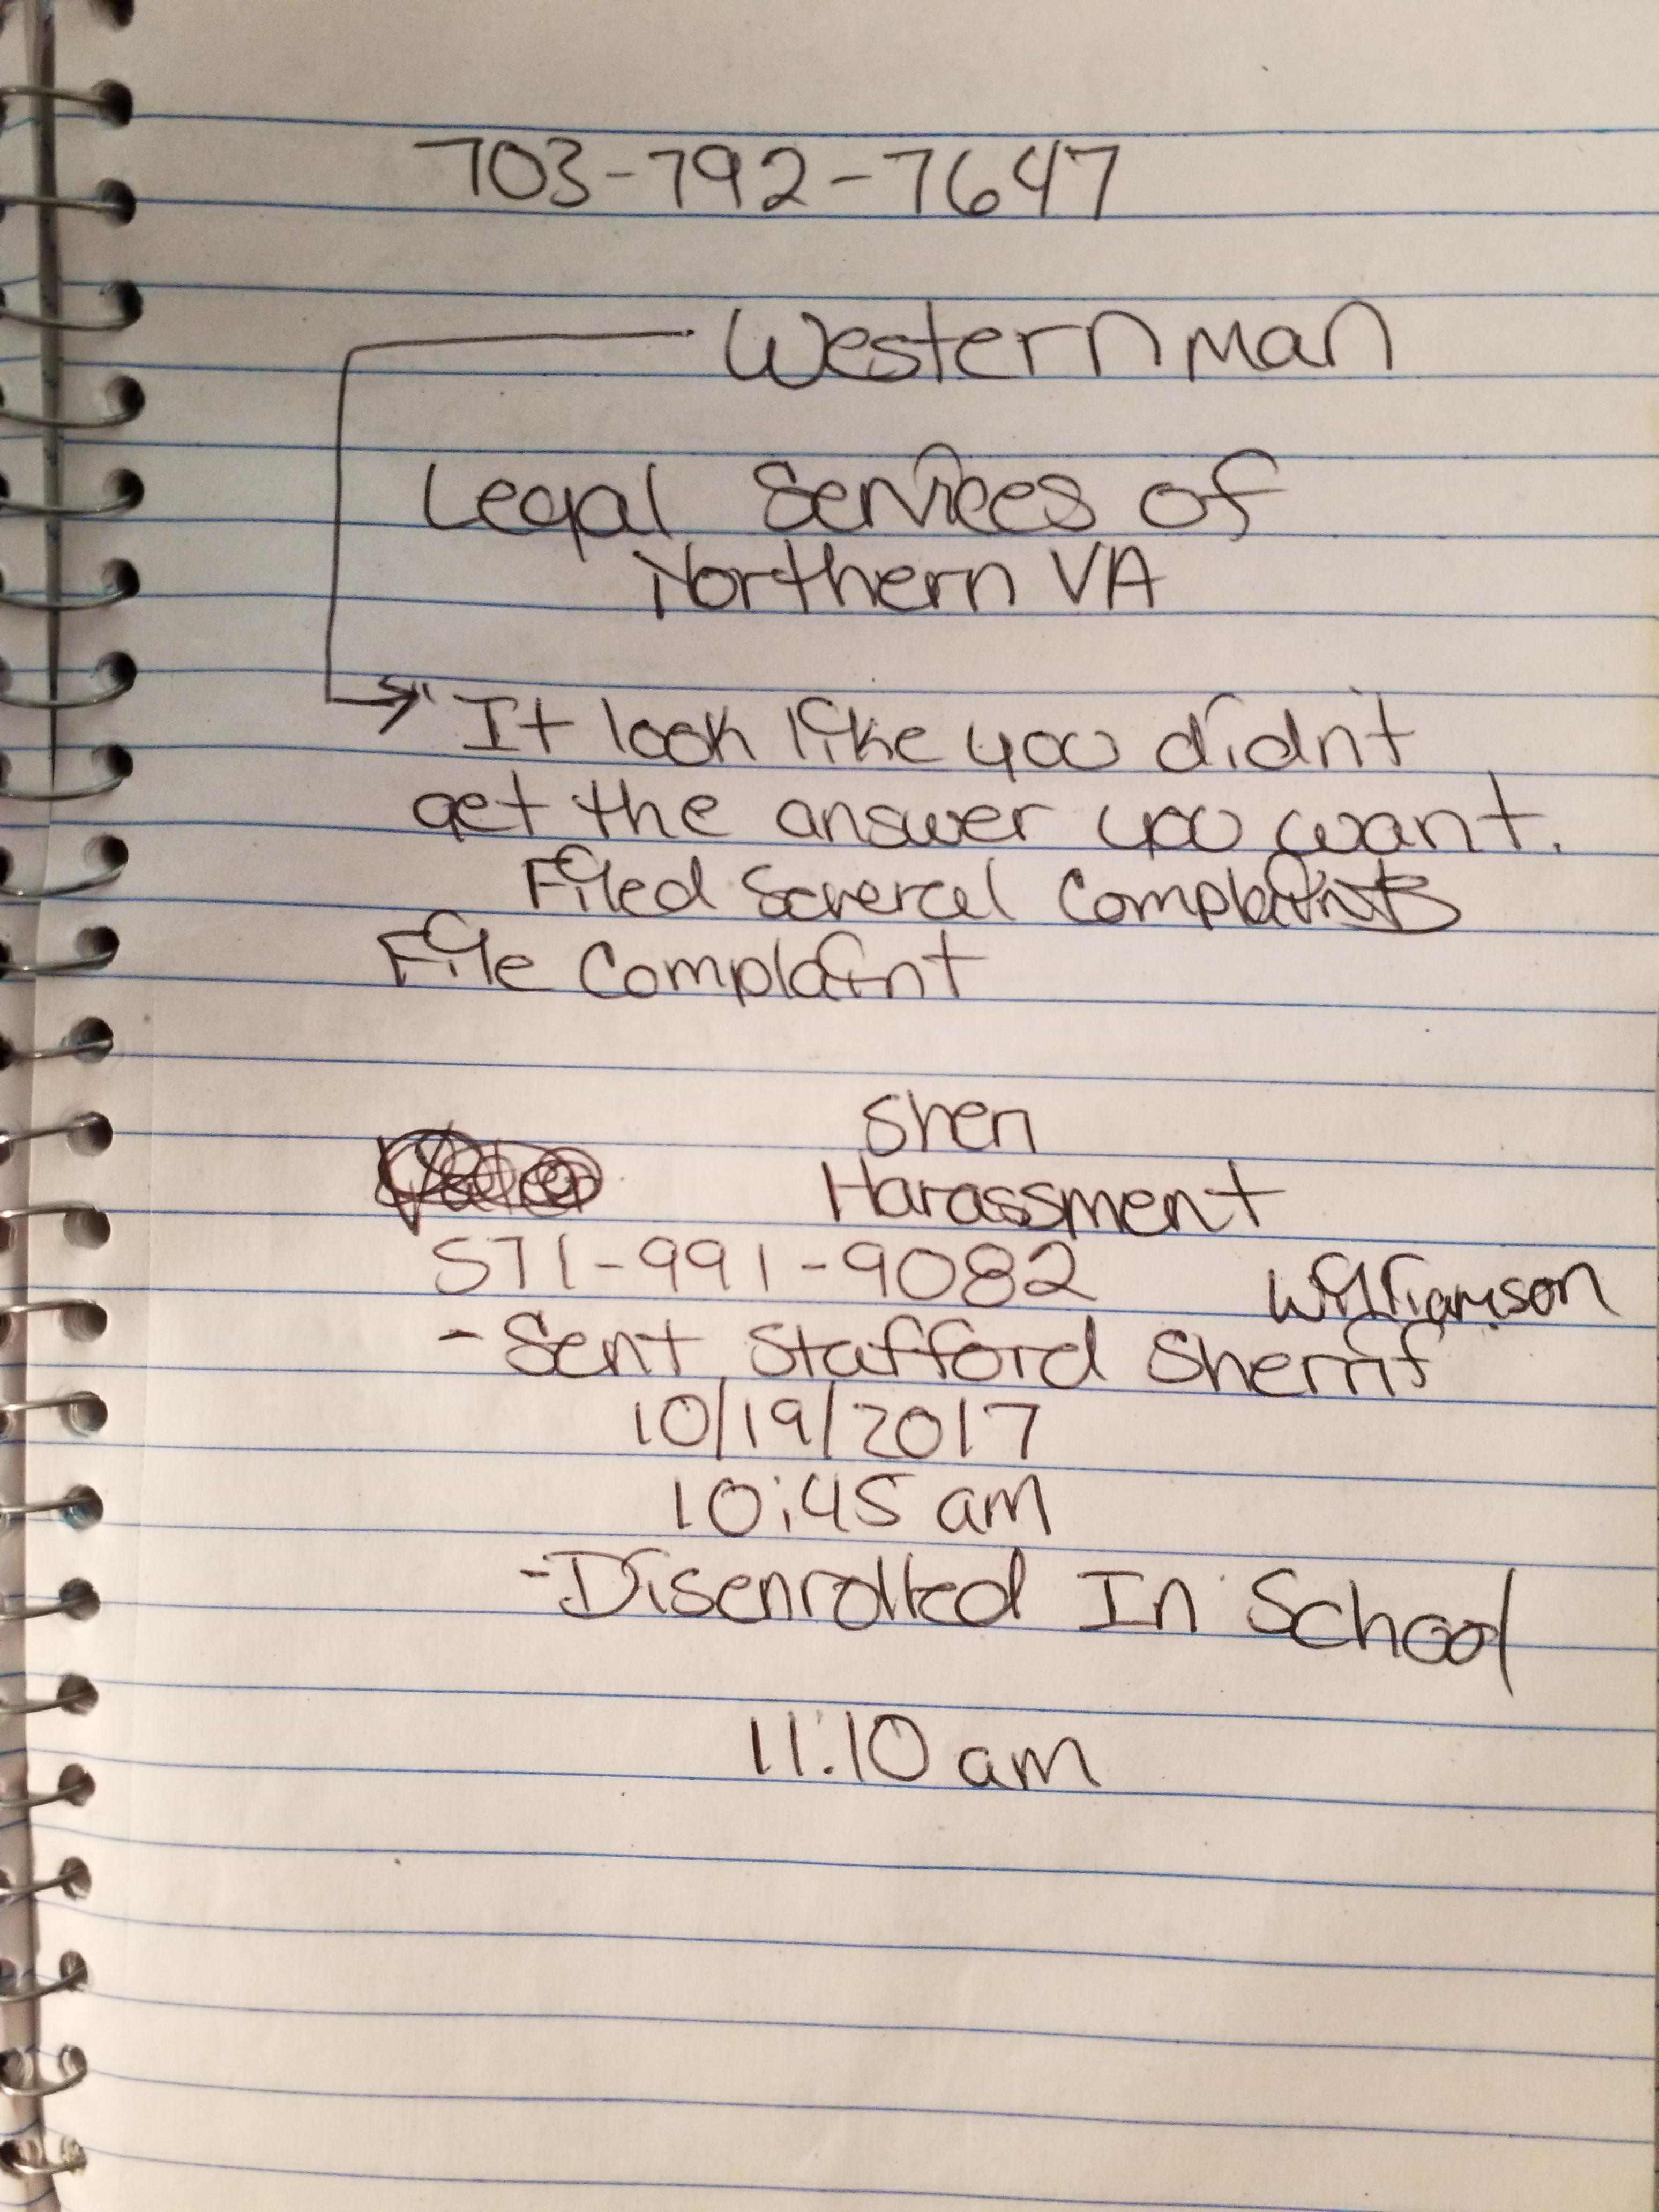 703-792-7647
Western man
Legal Services of
Northern VA
"It look like you didn't
get the answer you want.
Filed Several Complaints
File Complaint
Shen
Harassment
571-991-9082
Williamson
- Sent Stafford Sherrif
10/19/2017
10:45 am
- Disenrolled In School
11:10 am